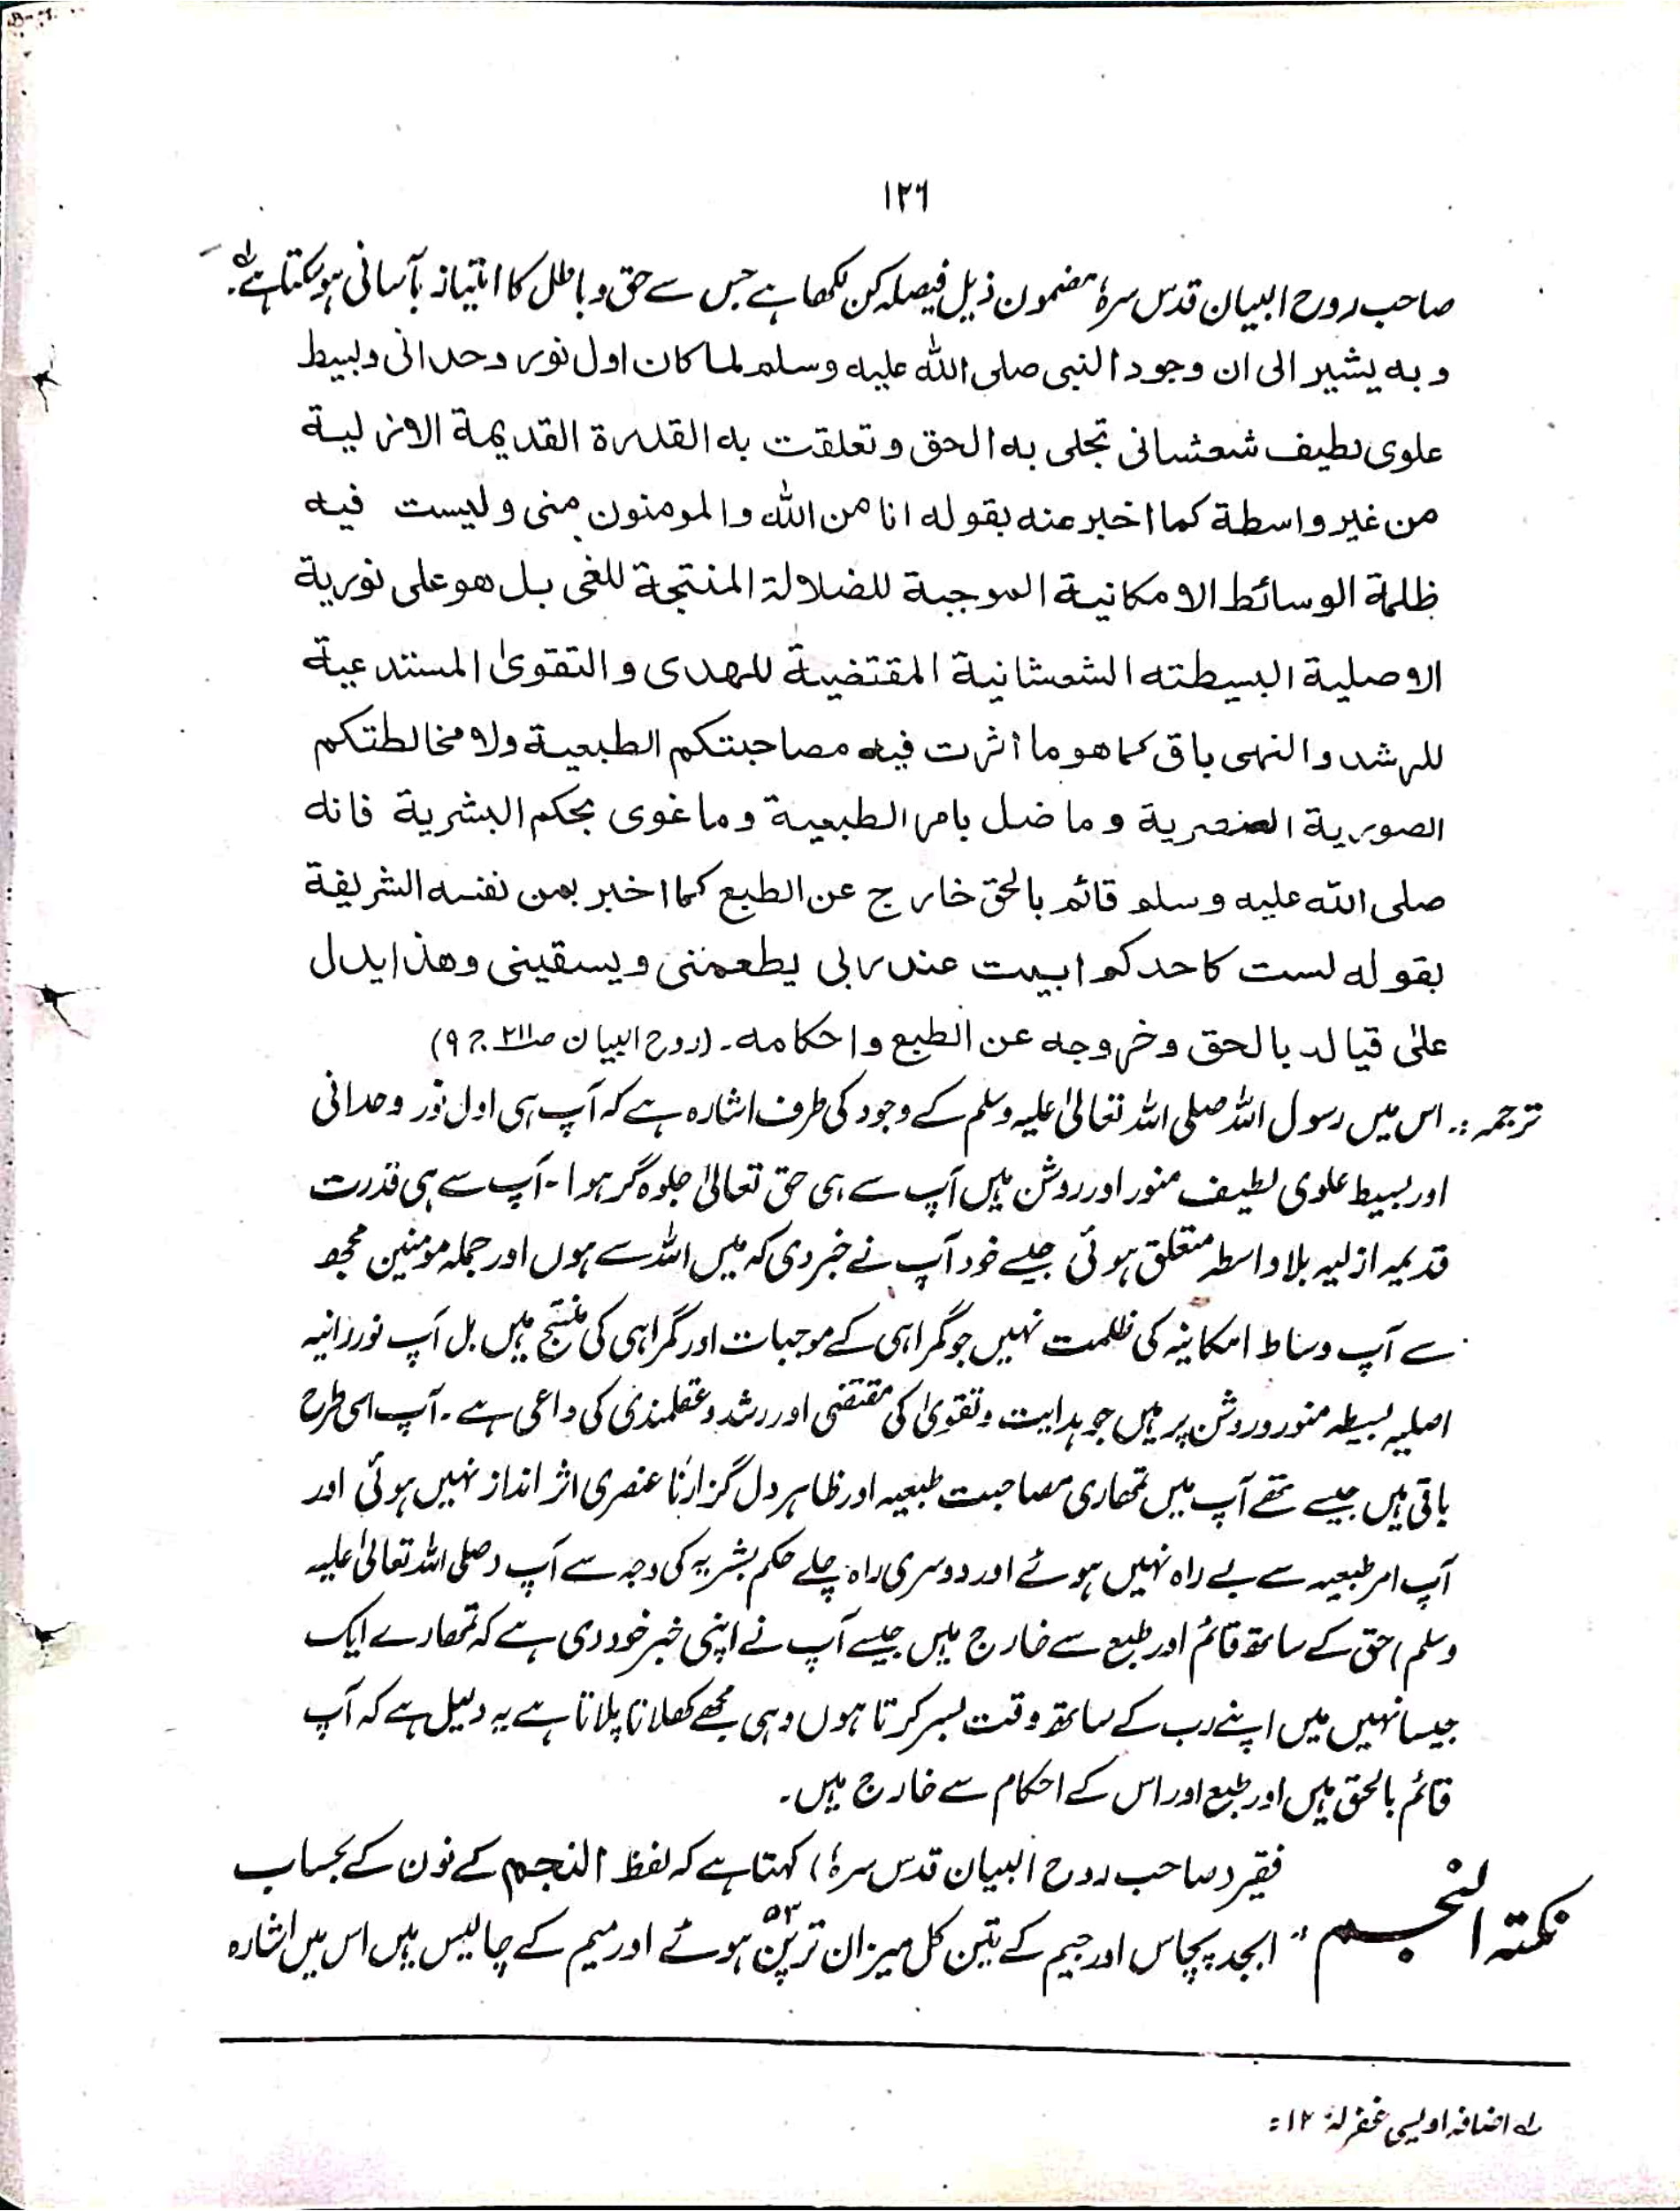 ۱۲۶
صاحب روح البیان قدس سرہٗ مضمون ذیل فیصلہ کن لکھا ہے جس سے حق و باطل کا امتیاز بآسانی ہو سکتا ہے لہ۔
و بہ یشیر الی ان وجود النبی صلی اللہ علیہ وسلم لما کان اول نور وحدانی و بسیط
علوی لطیف شعشانی تجلی بہ الحق و تعلقت بہ القدرۃ القدیمۃ الازلیۃ
من غیر واسطۃ کما اخبر عنہ بقولہ انا من اللہ والمومنون منی و لیست فیہ
ظلمۃ الوسائط الامکانیۃ الموجبۃ للضلالۃ المنتجۃ للغی بل ھو علی نوریۃ
الاصلیۃ البسیطتہ الشعشانیۃ المقتضیۃ للھدی والتقویٰ المستدعیۃ
للرشد والنھی باق کما ھو ما اثرت فیہ مصاحبتکم الطبعیۃ ولا مخالطتکم
الصوریۃ العنصریۃ و ما ضل بامر الطبعیۃ وما غوی بحکم البشریۃ فانہ
صلی اللہ علیہ وسلم قائم بالحق خارج عن الطبع کما اخبر بعن نفسہ الشریفۃ
بقولہ لست کاحدکم ابیت عند ربی یطعمننی و یسقینی وھذا یدل
علیٰ قیالہ بالحق وخروجہ عن الطبع واحکامہ۔ (روح البیان ص۲۱۱ ج۹)
ترجمہ :۔ اس میں رسول اللہ صلی اللہ تعالیٰ علیہ وسلم کے وجود کی طرف اشارہ ہے کہ آپ ہی اول نور وحدانی
اور بسیط علوی لطیف منور اور روشن ہیں آپ سے ہی حق تعالیٰ جلوہ گر ہوا۔ آپ سے ہی قدرت
قدیمہ ازلیہ بلا واسطہ متعلق ہوئی جیسے خود آپ نے خبر دی کہ میں اللہ سے ہوں اور جملہ مومنین مجھ
سے آپ وساط امکانیہ کی ظلمت نہیں جو گمراہی کے موجبات اور گمراہی کی منتج ہیں بل آپ نورانیہ
اصلیہ بسیطہ منور و روشن پر ہیں جو ہدایت و تقویٰ کی مقتضی اور رشد و عقلمندی کی داعی ہے۔ آپ اسی طرح
باقی ہیں جیسے تھے آپ میں تمھاری مصاحبت طبعیہ اور ظاہر دل گزارنا عنصری اثر انداز نہیں ہوئی اور
آپ امر طبعیہ سے بے راہ نہیں ہوئے اور دوسری راہ چلے حکم بشریہ کی وجہ سے آپ (صلی اللہ تعالیٰ علیہ
وسلم) حق کے ساتھ قائم اور طبع سے خارج ہیں جیسے آپ نے اپنی خبر خود دی ہے کہ تمھارے ایک
جیسا نہیں میں اپنے رب کے ساتھ وقت بسر کرتا ہوں وہی مجھے کھلاتا پلاتا ہے یہ دلیل ہے کہ آپ
قائم بالحق ہیں اور طبع اور اس کے احکام سے خارج ہیں۔
نکتہ النجم
فقیر (صاحب روح البیان قدس سرہٗ) کہتا ہے کہ لفظ النجم کے نون کے بحساب
ابجد پچاس اور جیم کے تین کل میزان ترپن ۵۳ ہوئے اور میم کے چالیس ہیں اس میں اشارہ
لہ اضافہ اویسی غفرلہٗ ۱۲ :